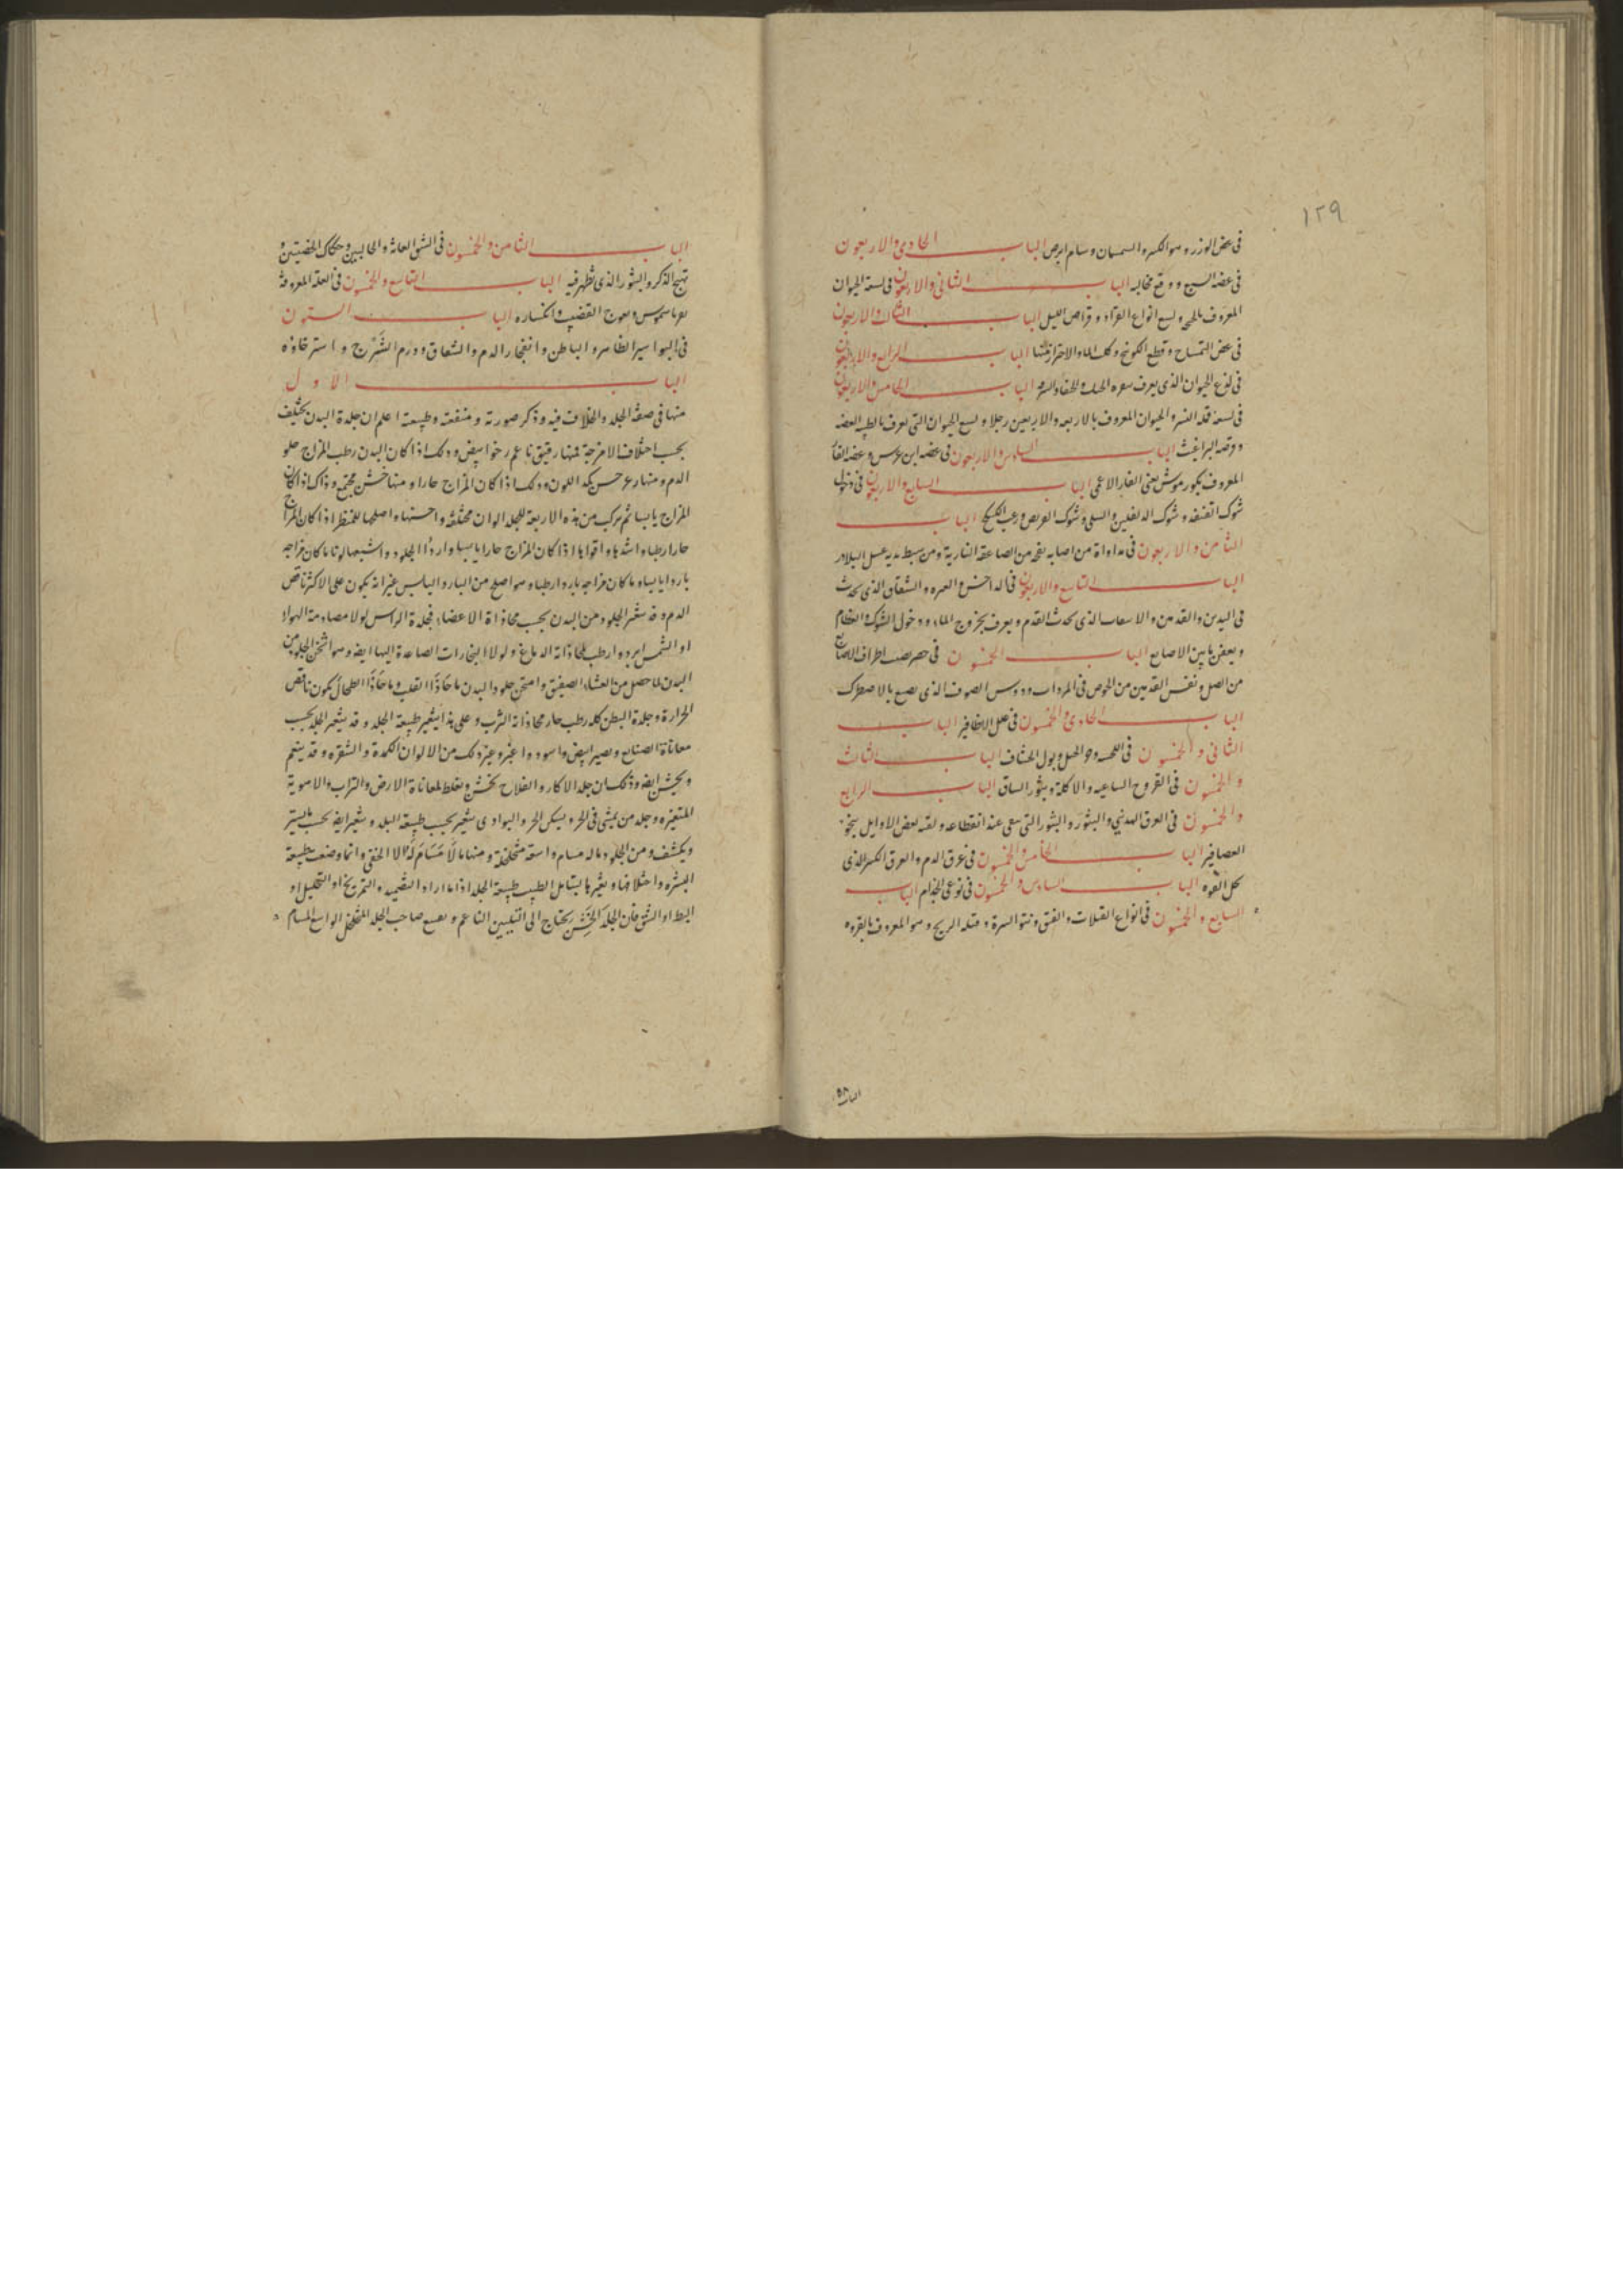 ١٢٩
في عض الوزر وهو الكبير والسمسان وسام ابرص الباب الحادي والاربعون
في عضة السبع ووقع مخالبه الباب الثاني والاربعون في لسعة الحيوان
المعروف ولسع انواع القراد وقراص الليل الباب الثالث والاربعون
في عض التمساح وقطع الكوسج وكلب الماء والاحتراز منها الباب الرابع والاربعون
في لذع الحيوان الذي يعرف الباب الخامس والاربعون
في لسعة قملة النسر والحيوان المعروف بالاربعة والاربعين رجلا ولسع الحيوان التي تعرف
وقرصة البراغيث الباب السادس والاربعون في عضة ابن عرس وعضة الفار
المعروف بكورموش يعني الفار الاعمى الباب السابع والاربعون في دخول
شوك القنفذ وشوك الدلفين والسلى وشوك الباب
الثامن والاربعون في مداواة من اصابه نفخ من الصاعقة النارية ومن يبط يديه عسل البلادر
الباب التاسع والاربعون في الداحس والشقاق الذي يحدث
في اليدين والقدمين الذي يحدث القدم ويعرف بخروج الماء ودخول الشوك والعظام
ويعفن ما بين الاصابع الباب الخمسون في اطراف الاصابع
من الصل ونفس القدمين من الخوض في ودوس الصوف الذي يصبغ
الباب الحادي والخمسون في علل الاظافير الباب
الثاني والخمسون في وبول الخشاف الباب الثالث
والخمسون في القروح الساعية والاكلة وبثور الساق الباب الرابع
والخمسون في العرق المدني والبثور والبثور التي تبقى عند انقطاعه ولقبه بعض الاوايل
العصافير الباب الخامس والخمسون في عرق الدم والعرق الكبير الذي
يحل القوة الباب السادس والخمسون في نوعي الجذام الباب
السابع والخمسون في انواع القيلات والفتق ونتو السرة وفتلة الريح وهو المعروف بالقروة
الباب ٥٨
الباب الثامن والخمسون في الشق العانة والحالبين وحكاك الخصيتين و
تهيج الذكر والبثور الذي تظهر فيه الباب التاسع والخمسون في العلة المعروفة
وتعوج القضيب وانكساره الباب الستون
في البواسير الظاهر والباطن وانفجار الدم والشقاق وورم الشرج واسترخاؤه
الباب الاول
منها في صفة الجلد والخلاف فيه وذكر صورته ومنفعته وطبيعته اعلم ان جلدة البدن يختلف
بحسب اختلاف الامزجة فمنها رقيق ناعم رخو ابيض وذلك اذا كان البدن رطب المزاج حلو
الدم ومنها زعر حسن كمد اللون وذلك اذا كان المزاج حارا ومنها خشن مجتمع وذاك اذا كان
المزاج يابسا ثم تركب من هذه الاربعة للجلد الوان مختلفة واحسنها واصلحها للمنظر اذا كان المزاج
حارا رطبا واشدها واقواها اذا كان المزاج حارا يابسا واردأ الجلود واشبعها لونا ما كان مزاجه
باردا يابسا وما كان مزاجه باردا رطبا وهو اصلح من البارد اليابس غير انه يكون على الاكثر ناقص
الدم وقد يتغير الجلود من البدن بحسب محاذاة الاعضاء فجلدة الراس لولا مصادمة الهواء
او الشمس ابرد وارطب لمحاذاته الدماغ ولولا البخارات الصاعدة اليها ايضا وهو اثخن الجلود من
البدن لما حصل من الغشاء الصفيق وامتحن جلود البدن ما حاذا القلب وما حاذا الطحال يكون ناقص
الحرارة وجلدة البطن كله رطب حار محاذاته الثرب وعلى هذا يتغير طبيعة الجلد وقد يتغير الجلد بحسب
معاناة الصنايع ويصير ابيض واسود واغبر وغير ذلك من الالوان الكمدة والشقرة وقد ينعم
ويخشن ايضا وذلك ان جلد الاكار والفلاح يخشن ويغلظ لمعاناة الارض والتراب والاهوية
المتغيرة وجلد من يمشي في الحر ويسكن الحر والبوادي يتغير بحسب طبيعة البلد ويتغير ايضا بحسب ما يستر
ويكشف ومن الجلود ما له مسام واسعة متخلخلة ومنها ما لا مسام له الا الخفي وانما وضعت طبيعة
البشرة واختلافها وتغيرها ليتامل الطبيب طبيعة الجلد اذا ما اراد التضميد والتمريخ او التحليل او
البط او الشق فان الجلد الخشن يحتاج الى التليين الناعم صاحب الجلد المتخلخل الواسع المسام